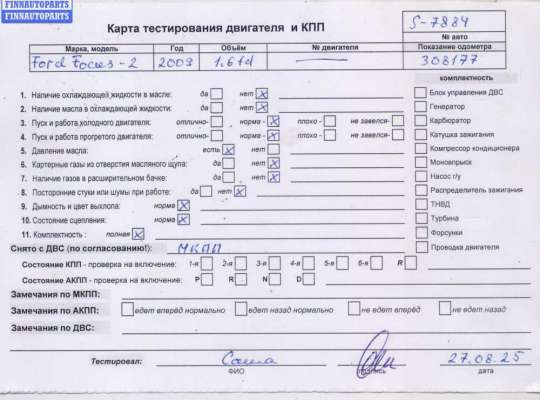 FINNAUTOPARTS
FINNAUTOPARTS
FINNAUTOPARTS
Карта тестирования двигателя и КПП
S-7884
№ авто
Марка, модель Год Объём № двигателя Показание одометра
Ford Focus-2 2009 1.6td 308177
комплектность
1. Наличие охлаждающей жидкости в масле: да нет
2. Наличие масла в охлаждающей жидкости: да нет
3. Пуск и работа холодного двигателя: отлично- норма - плохо - не завелся-
4. Пуск и работа прогретого двигателя: отлично- норма - плохо - не завелся-
5 Давление масла: есть нет
6. Картерные газы из отверстия масляного щупа: да нет
7. Наличие газов в расширительном бачке: да нет
8. Посторонние стуки или шумы при работе: да нет
9. Дымность и цвет выхлопа: норма
10. Состояние сцепления: норма
11. Комплектность : полная
Блок управления ДВС
Генератор
Карбюратор
Катушка зажигания
Компрессор кондиционера
Моновпрыск
Насос г/у
Распределитель зажигания
ТНВД
Турбина
Форсунки
Проводка двигателя
Снято с ДВС (по согласованию!): МКПП
Состояние КПП - проверка на включение: 1-я 2-я 3-я 4-я 5-я 6-я R
Состояние АКПП - проверка на включение: P R N D
Замечания по МКПП:
Замечания по АКПП: едет вперёд нормально едет назад нормально не едет вперёд не едет назад
Замечания по ДВС:
Тестировал: Саша 27.08.25
ФИО подпись дата